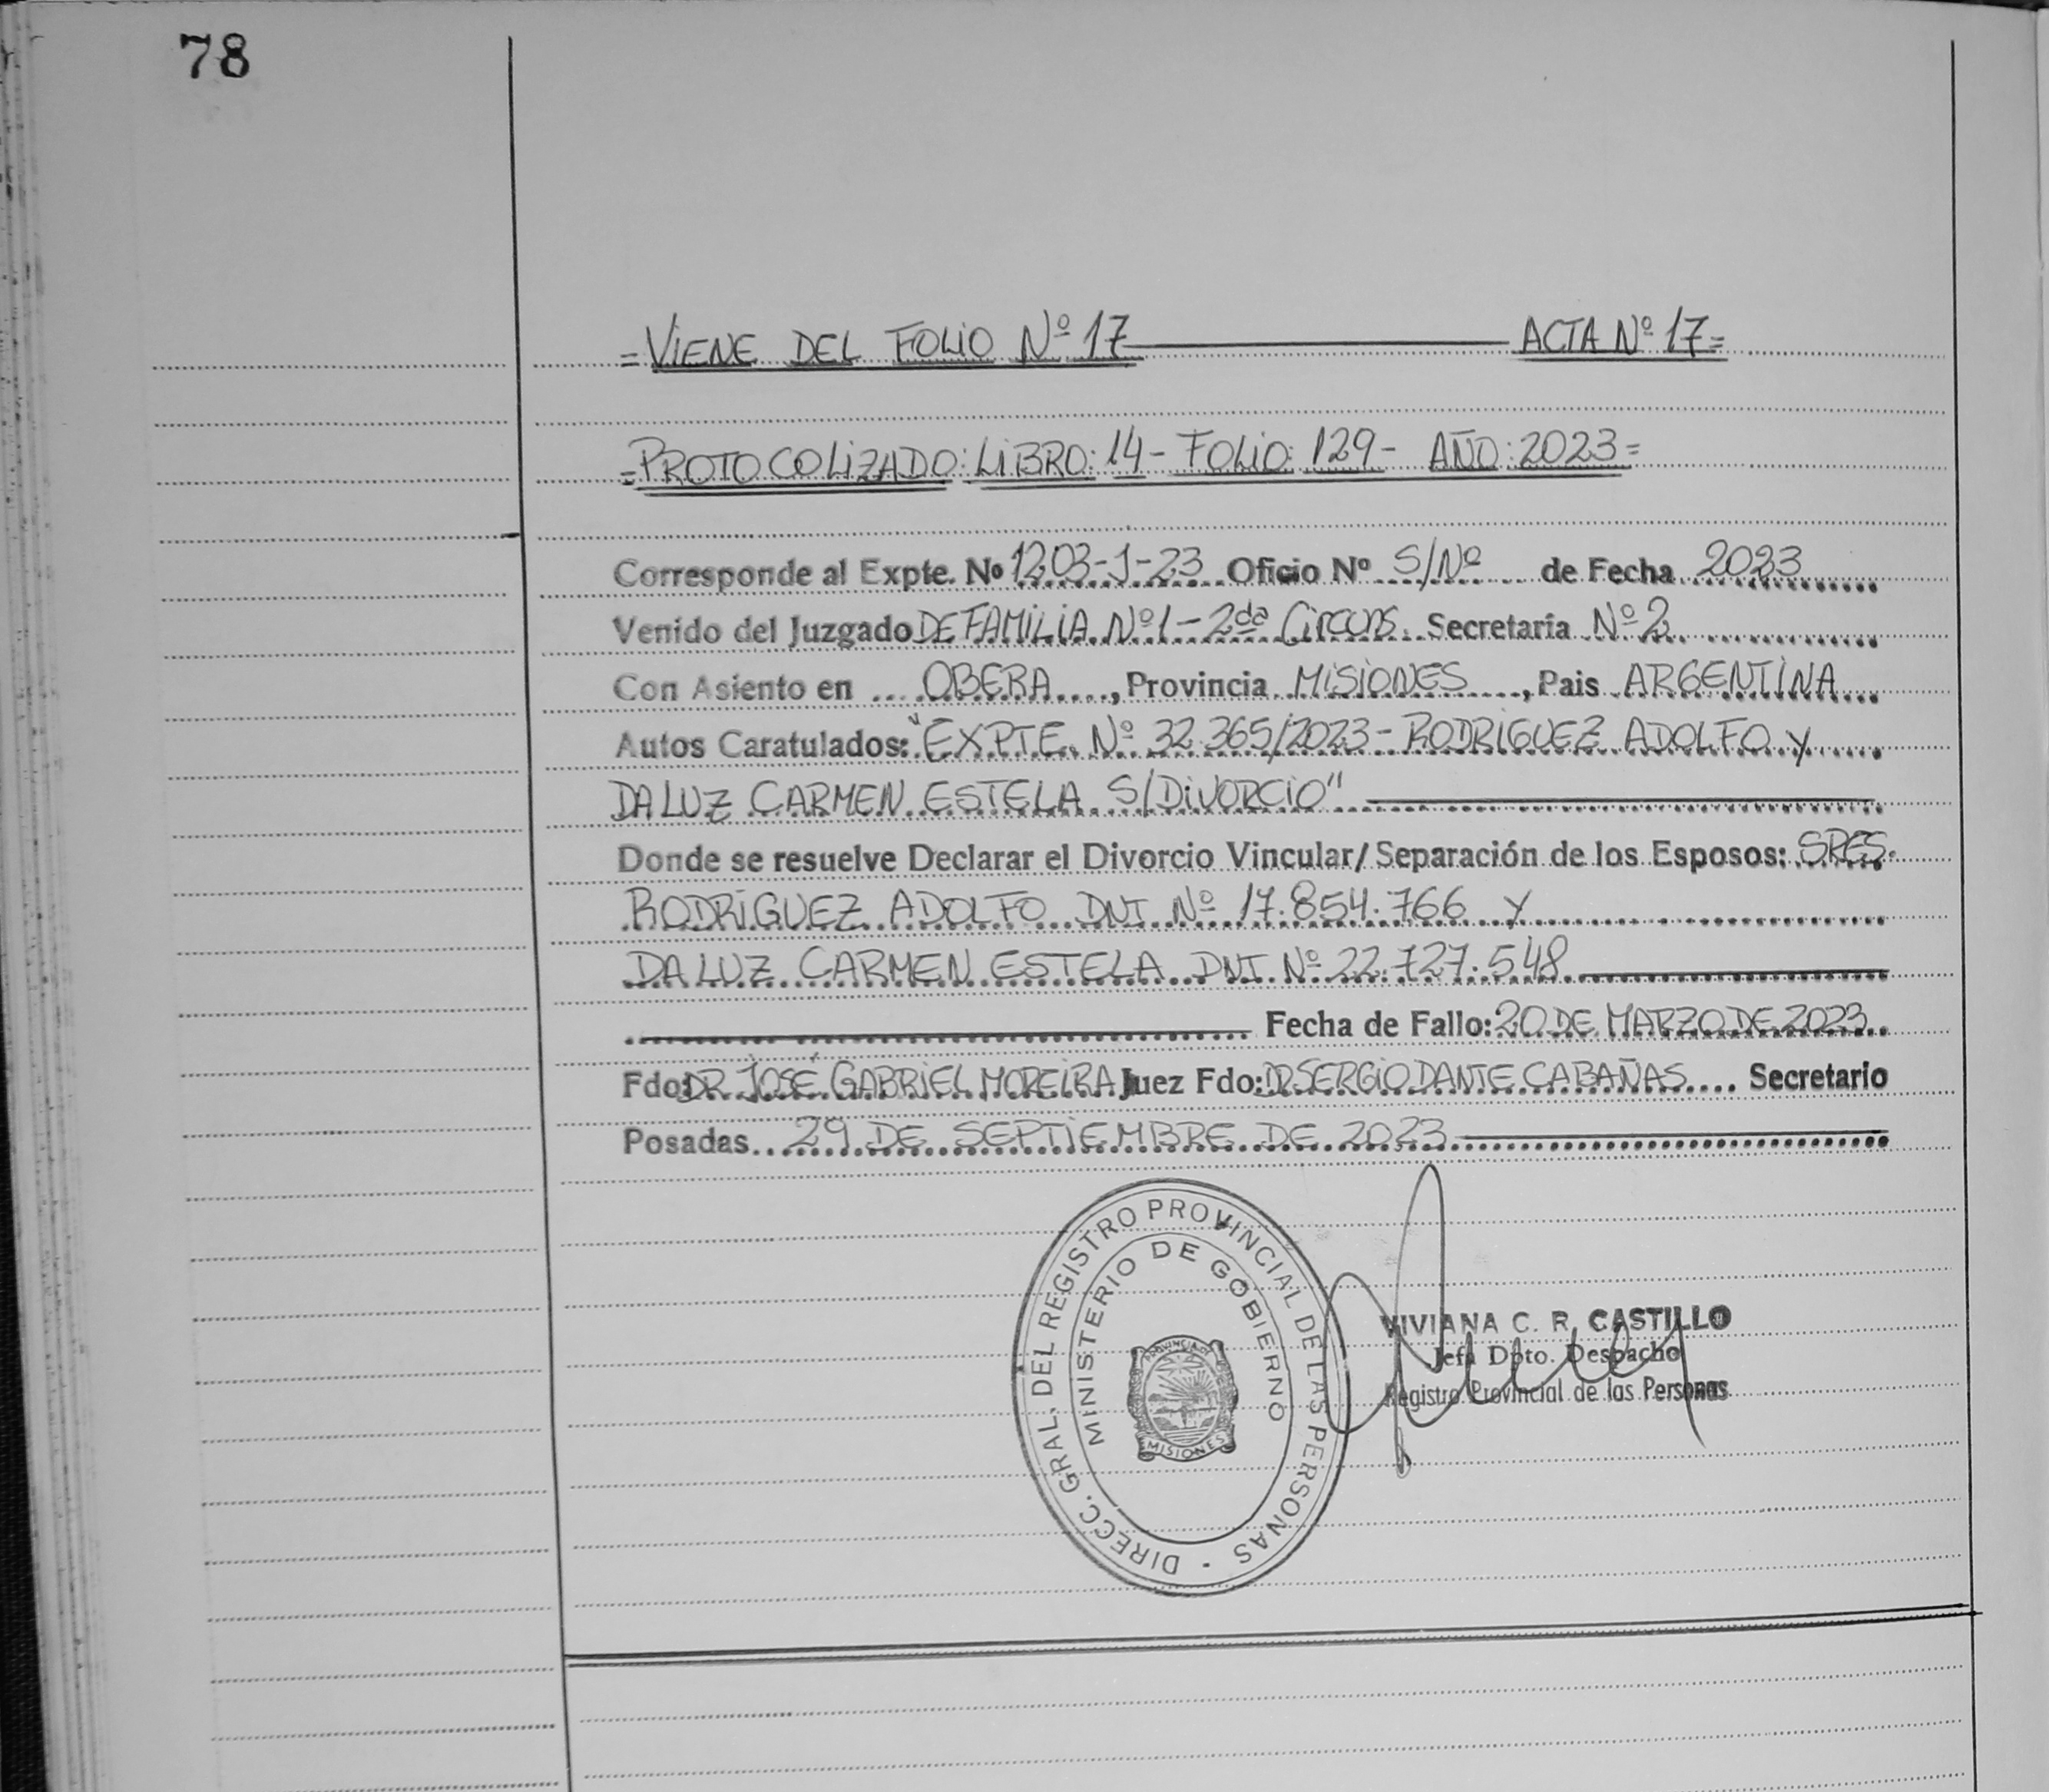 78
=VIENE DEL FOLIO Nº 17 ACTA Nº 17=
=PROTOCOLIZADO: LIBRO: 14 - FOLIO: 129 - AÑO: 2023=
Corresponde al Expte. Nº 1203-J-23 Oficio Nº S/Nº de Fecha 2023
Venido del Juzgado DE FAMILIA Nº 1 - 2da Circuns. Secretaría Nº 2
Con Asiento en OBERA, Provincia MISIONES, Pais ARGENTINA
Autos Caratulados: "EXPTE. Nº 32.365/2023 - RODRIGUEZ ADOLFO y
DA LUZ CARMEN ESTELA S/DIVORCIO"
Donde se resuelve Declarar el Divorcio Vincular/Separación de los Esposos: SRES.
RODRIGUEZ ADOLFO DNI Nº 17.854.766 y
DA LUZ CARMEN ESTELA DNI Nº 22.727.548
Fecha de Fallo: 20 DE MARZO DE 2023
Fdo: DR JOSÉ GABRIEL MOREIRA Juez Fdo: DR SERGIO DANTE CABAÑAS Secretario
Posadas 29 DE SEPTIEMBRE DE 2023
DIRECC. GRAL. DEL REGISTRO PROVINCIAL DE LAS PERSONAS -
MINISTERIO DE GOBIERNO
PROVINCIA DE
MISIONES
VIVIANA C. R. CASTILLO
Jefa Dpto. Despacho
Registro Provincial de las Personas